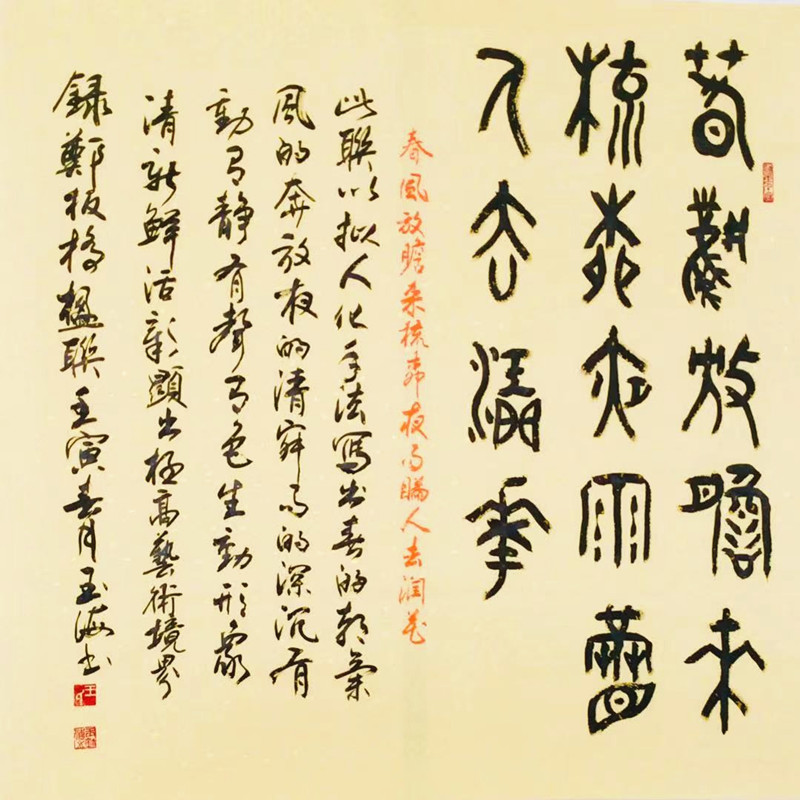 春風放膽來
梳柳夜雨瞞
人去潤花
春風放膽來梳柳夜雨瞞人去潤花
此聯以拟人化手法寫出春的朝氣
風的奔放夜的清寂雨的深沉有
動有靜有聲有色生動形象
清新鮮活彰顯出極高藝術境界
録鄭板橋楹聯壬寅春月玉海书